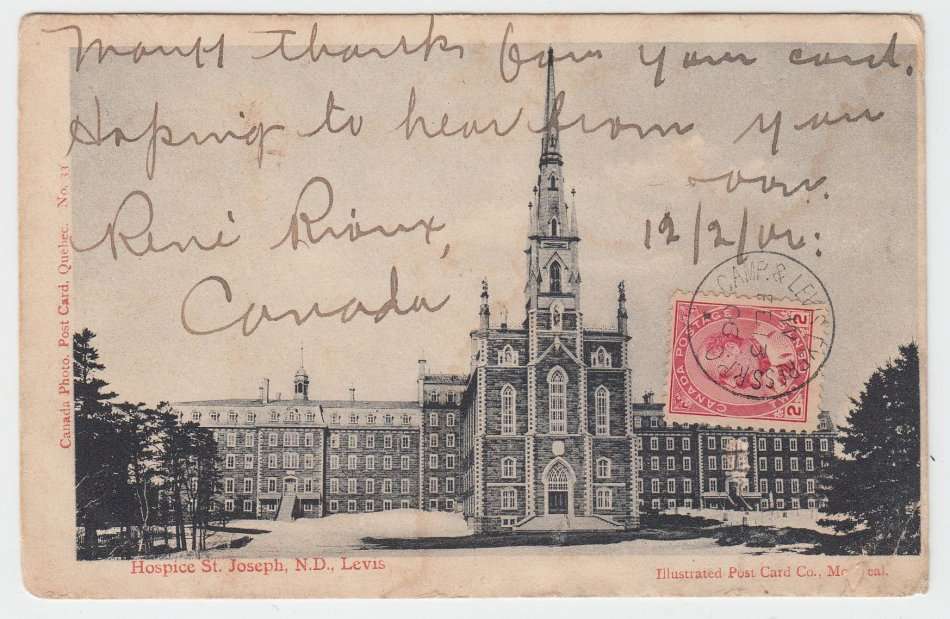 Many thanks for your card.
Hoping to hear from you
soon.
12/2/06.
René Rioux,
Canada
CAMP. & LEVIS EXPRESS R.P.O
CANADA POSTAGE
2 CENTS 2
Canada Photo. Post Card. Quebec. No. 33
Hospice St. Joseph, N.D., Levis
Illustrated Post Card Co., Mo cal.